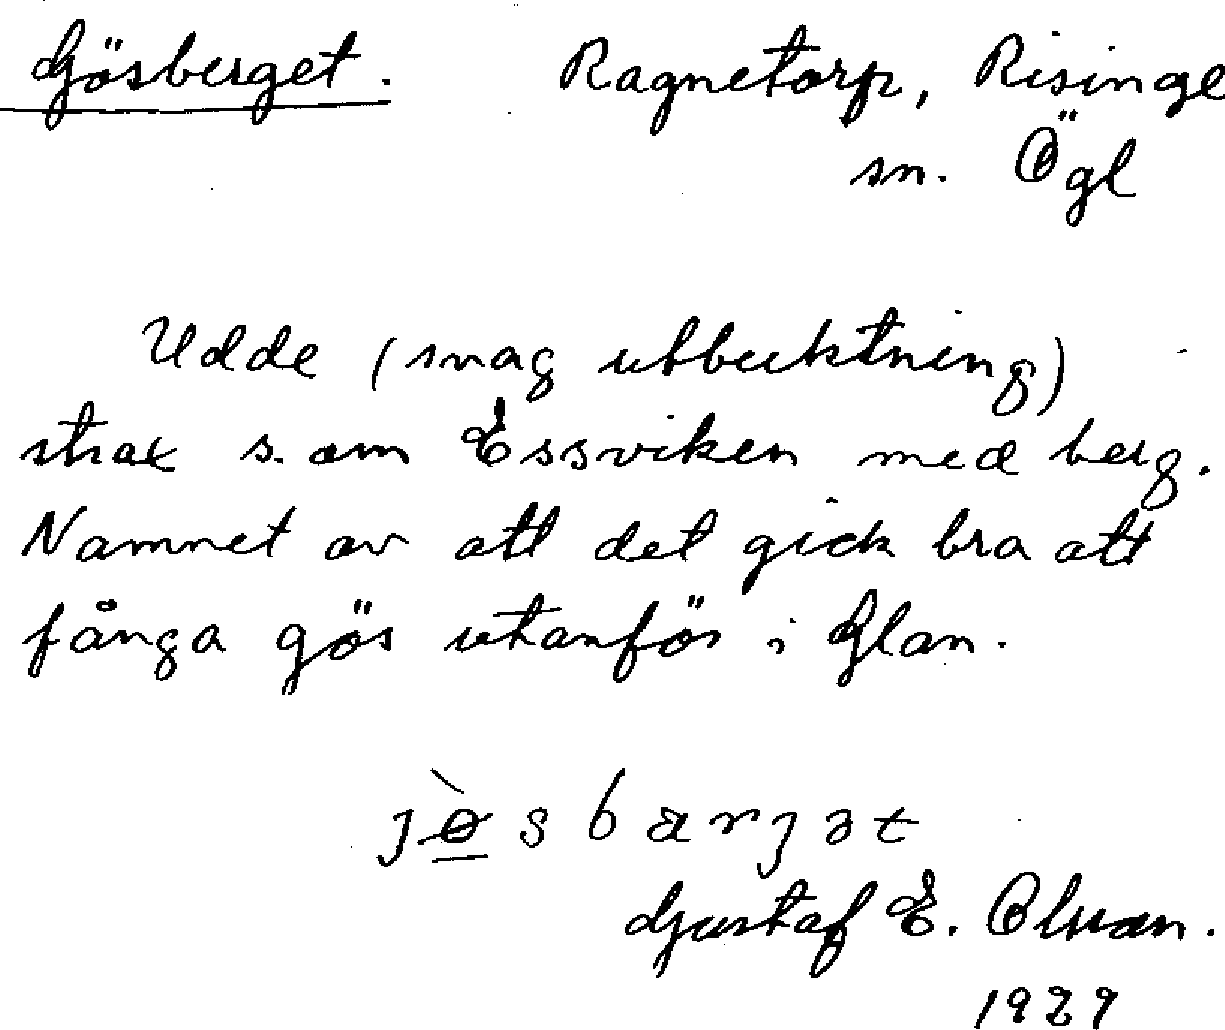 Gösberget. Ragnetorp, Risinge
sn. Ögl
Udde (svag utbuktning)
strax s. om Essviken med berg.
Namnet av att det gick bra att
fånga gös utanför i Glan.
jø̀sbærjət
Gustaf E. Olsson.
1929